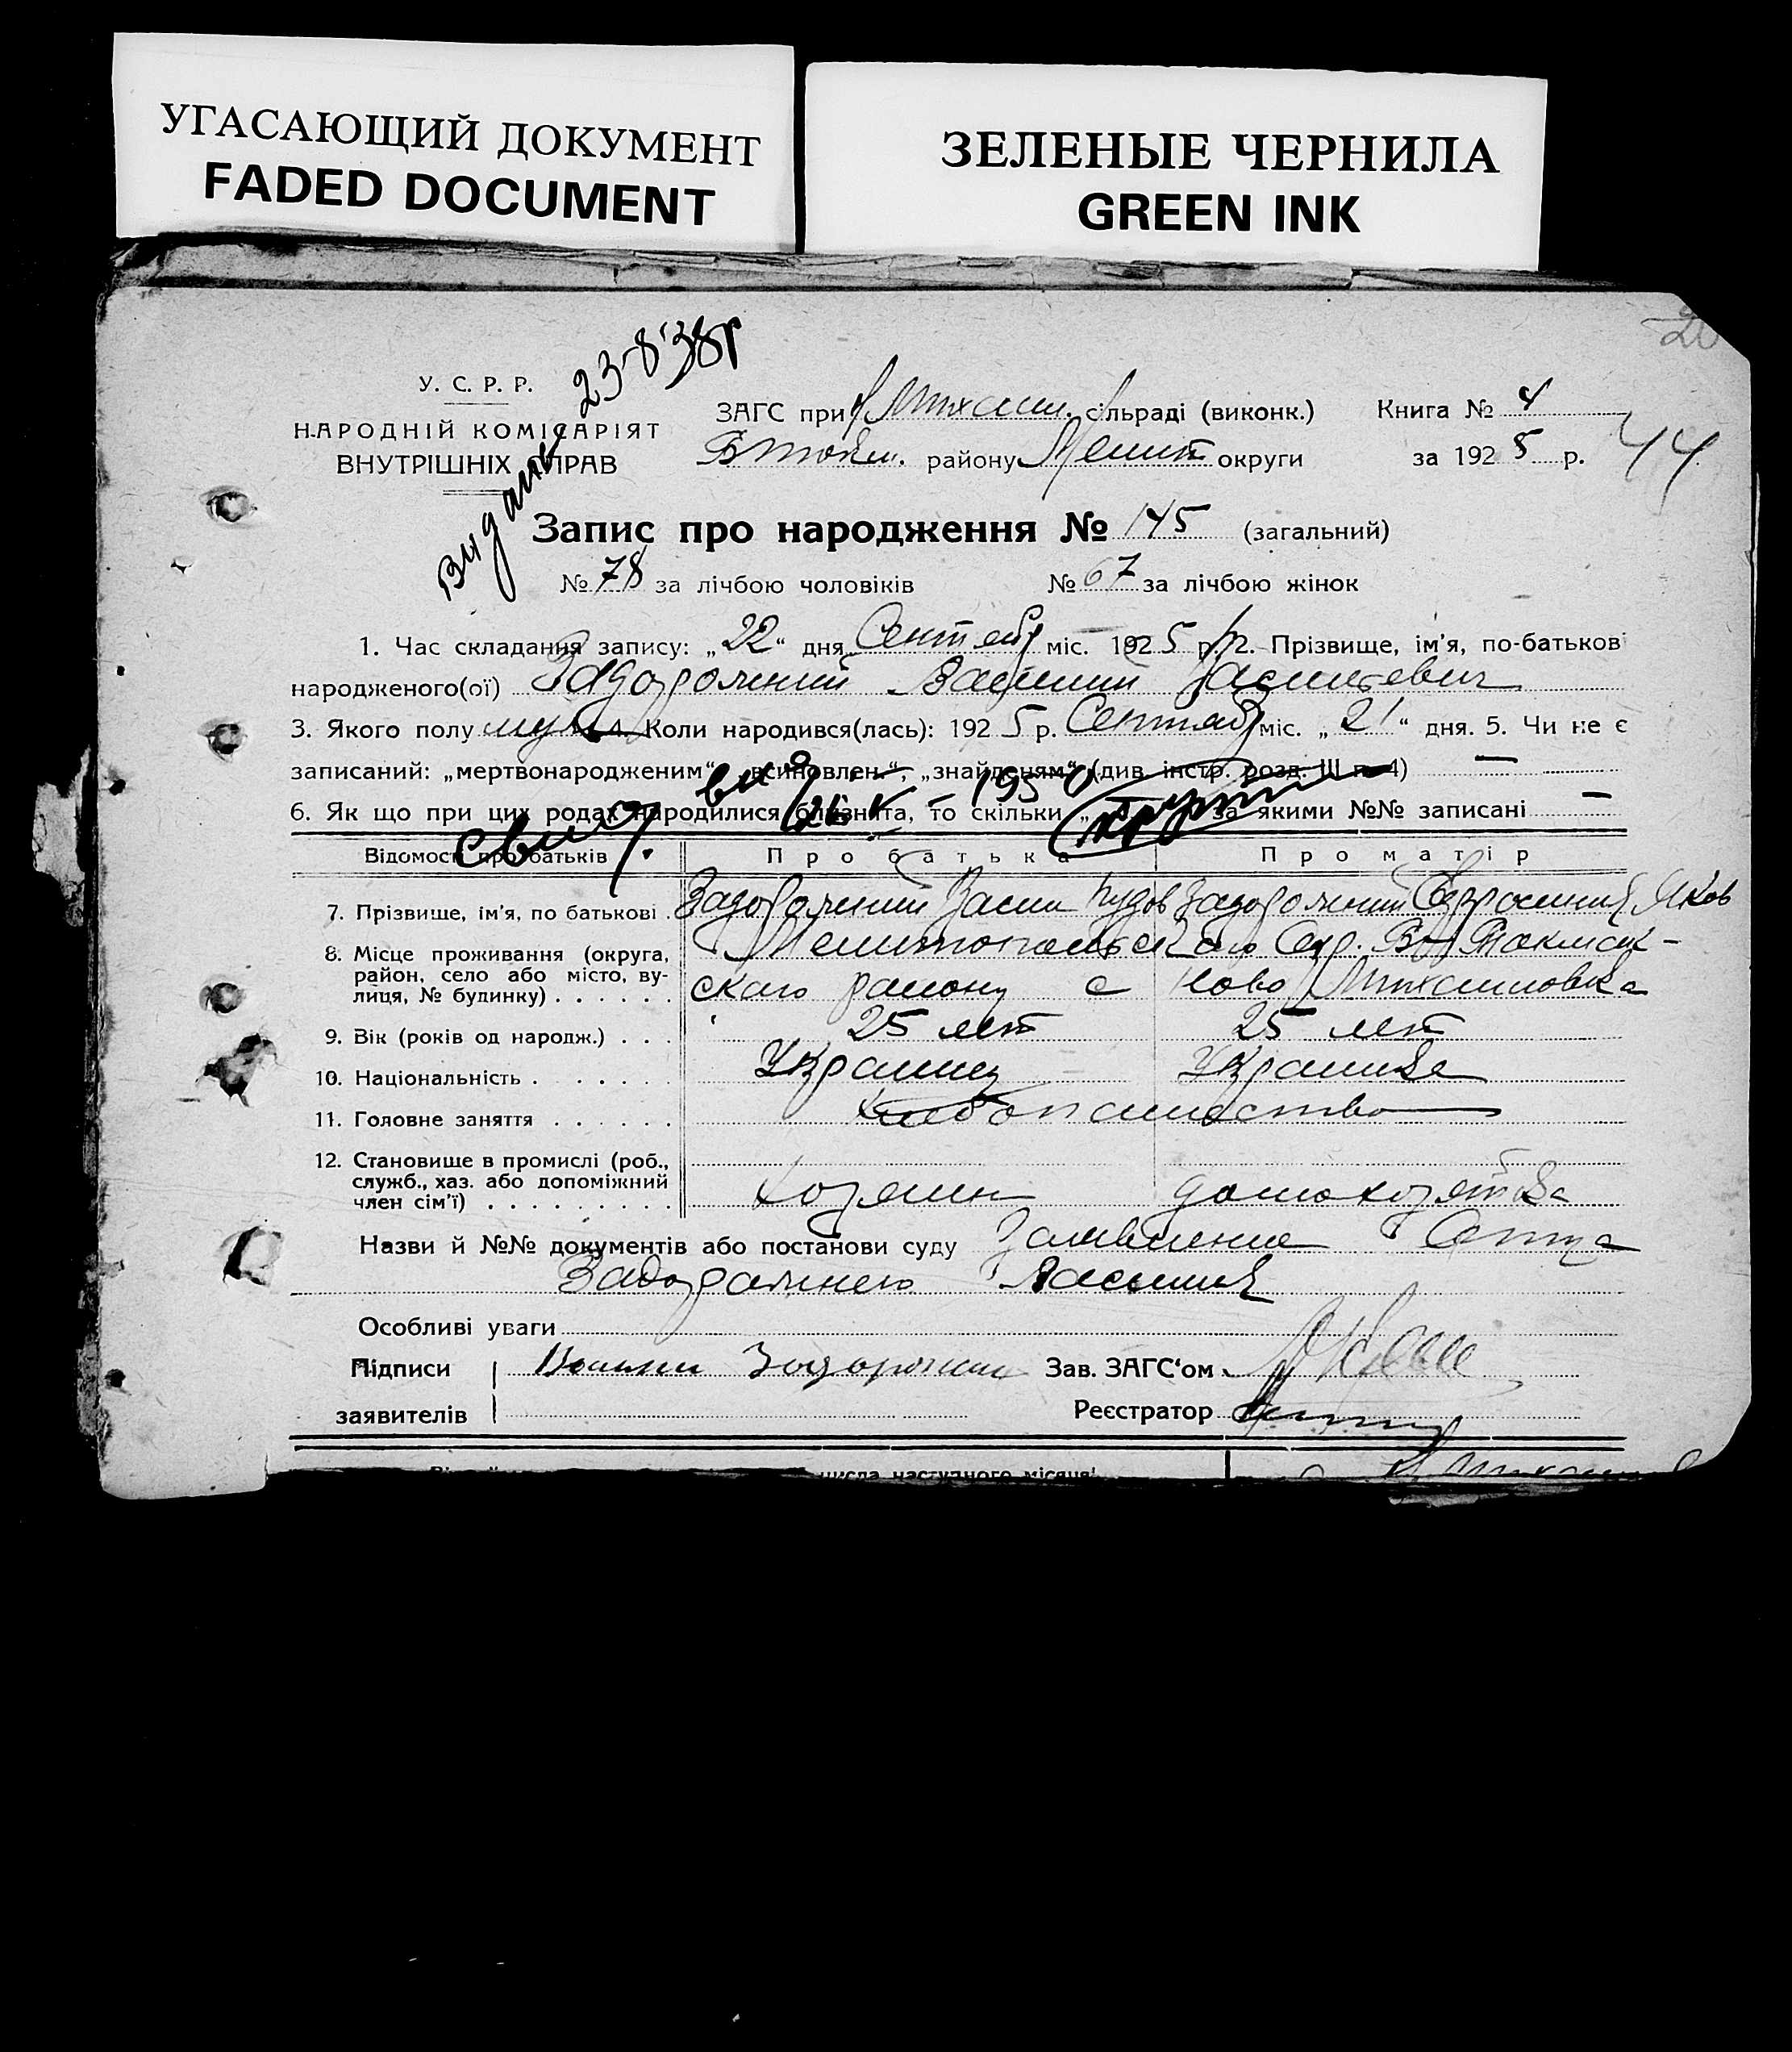 УГАСАЮЩИЙ ДОКУМЕНТ
FADED DOCUMENT
ЗЕЛЕНЫЕ ЧЕРНИЛА
GREEN INK
У. С. Р. Р.
НАРОДНІЙ КОМІСАРІЯТ
ВНУТРІШНІХ СПРАВ
Видано 23-8-38г
ЗАГС при Михайл. сільраді (виконк.) Книга № 4
В Токм. району Мелит округи за 1925 р.
44
Запис про народження № 145 (загальний)
№ 78 за лічбою чоловіків № 67 за лічбою жінок
1. Час складання запису: „22“ дня Сентябр міс. 1925 р. 2. Прізвище, ім'я, по-батькові
народженого(ої) Задорожний Василий Васильевич
3. Якого полу муж 4. Коли народився(лась): 1925 р. Сентябр міс. „21“ дня. 5. Чи не є
записаний: „мертвонародженим“, „всиновлен.“, „знайденям“ (див. інстр. розд. III п. 4) —
6. Як що при цих родах народилися близнята, то скільки за якими №№ записані —
свид. 1950
Відомості про батьків Про батька Про матір
7. Прізвище, ім'я, по батькові Задорожний Васил Задорожний Ефросиния Яков
8. Місце проживання (округа, район, село або місто, вулиця, № будинку) Мелитопольского Окр. В Токмак-
скаго району с Ново Михайловка
9. Вік (років од народж.) 25 лет 25 лет
10. Національність Украинец Украинка
11. Головне заняття хлебопашество
12. Становище в промислі (роб., служб., хаз. або допоміжний член сім'ї) хозяин домохозяйка
Назви й №№ документів або постанови суду Заявление Отца
Задорожнего Василия
Особливі уваги
Підписи Зав. ЗАГС'ом
заявителів Реєстратор
числа наступного місяця